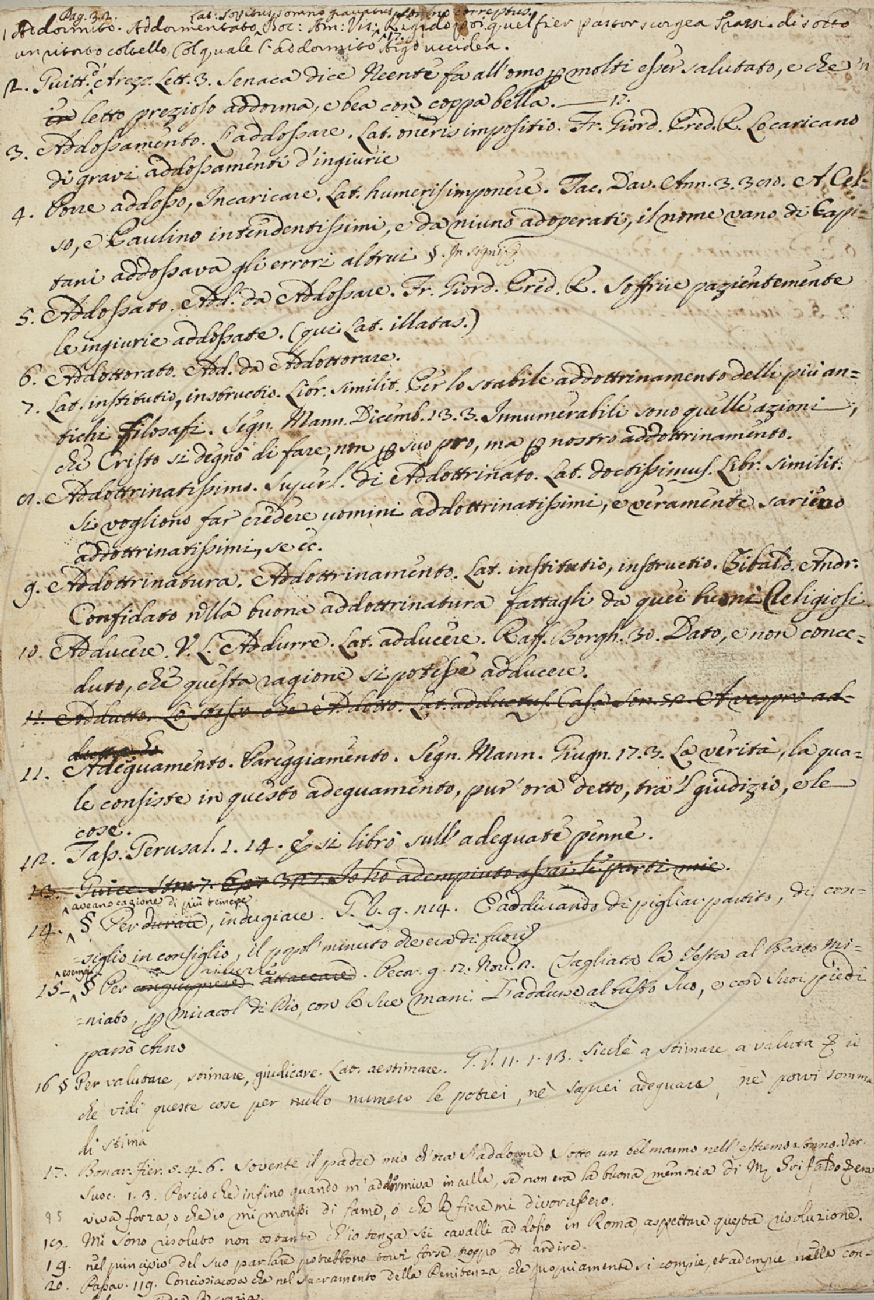 Pag. 32. Lat. sopitus somno gravatus, somno correptus.
1 Addormito. Addormentato. Boc: Am: Vis: Rigido poi quel fier pastor scorgea starsi di sotto
un vitreo coltello, col quale l'addormito Argo uccidea.
2. Guitt. d'Arezo. Lett. 3. Senaca dice Neente fa all'omo p molti esser salutato, e che 'n
letto prezioso addorma, e bea con coppa bella. — 12.
3. Addossamento. L'addossare. Lat. oneris impositio. Fr. Giord. Pred. R. Lo caricano
di gravi addossamenti d'ingiurie
4. Porre addosso, Incaricare. Lat. humeris imponere. Tac. Dav. Ann. 3. A Cel=
so, e Paulino intendentissimi, e da niuno adoperati, il nome vano di Capi=
tani addossava gli errori altrui §. In
5. Addossato. Add. da Addossare. Fr. Giord. Pred. R. Soffrire pazientemente
le ingiurie addossate. (qui Lat. illatas.)
6. Addottorato. Add. da Addottorare.
7. Lat. institutio, instructio. Libr. Similit. Per lo stabile addottrinamento delli più an=
tichi Filosafi. Segn. Mann. Dicemb. 13. 3. Innumerabili sono quelle azioni,
che Cristo si degnò di fare, non p suo pro, ma p nostro addottrinamento.
8. Addottrinatissimo. Superl. di Addottrinato. Lat. doctissimus. Libr. Similit.
Si vogliono far credere uomini addottrinatissimi, e veramente sarieno
addottrinatissimi, se ec.
9. Addottrinatura. Addottrinamento. Lat. institutio, instructio. Zibald. Andr.
Confidato nlla buona addottrinatura fattagli da quei buoni Religiosi.
10. Adducere. V. L. Addurre. Lat. adducere. Raff. Borgh. 30. Dato, e non conce=
duto, che questa ragione si potesse adducere.
11. Adducto. Lo stesso che Addotto. Lat. adductus. Casa Son. A vespro ad=
11. Adeguamento. Pareggiamento. Segn. Mann. Giugn. 17. 3. La verità, la qua=
le consiste in questo adeguamento, pur' ora detto, tra 'l giudizio, e le
cose.
12. Tass. Gerusal. 1. 14. E si librò sull'adeguate penne.
13. Guicc. Stor. 7. Io ho adempiuto assai le parti mie.
14. § Per durare, indugiare. G. V. 9. 214. E adducando di pigliar partito, di con=
siglio in consiglio, il popol minuto che era di fuori
15 § Per congiugnere attaccare. Pecor. g. 12. Nov. 2. Tagliata la testa al Beato Mi=
niato, p miracol di Dio, con le sue mani l'addusse al busto suo, e con suoi piedi
passò Arno
16 § Per valutare, stimare, giudicare. Lat. aestimare. G. V. 11. 1. 13. Sicchè a stimare a valuta
che vidi queste cose per nullo numero le potrei, nè saprei adeguare, nè porvi somma
di stima
17. Bonar. Fier. 5. 4. 6. Sovente il padre mio Sotto un bel marmo nell'estremo sonno. Var.
Suoc. 1. 3. Perciochè infino quando m'addormiva in culla, se non era la buona memoria di M.
viva forza, o che io mi morissi di fame, o che le fiere mi divorassero.
18. Mi sono risoluto non ostante ch'io tenga sei cavalli addosso in Roma aspettare questa risoluzione.
19. nel principio del suo parlare potrebbono forse troppo di ardire.
20. Passav. 119. Conciossiacosachè nel Sacramento della Penitenza, che propiamente si compie, et adempie nella con-